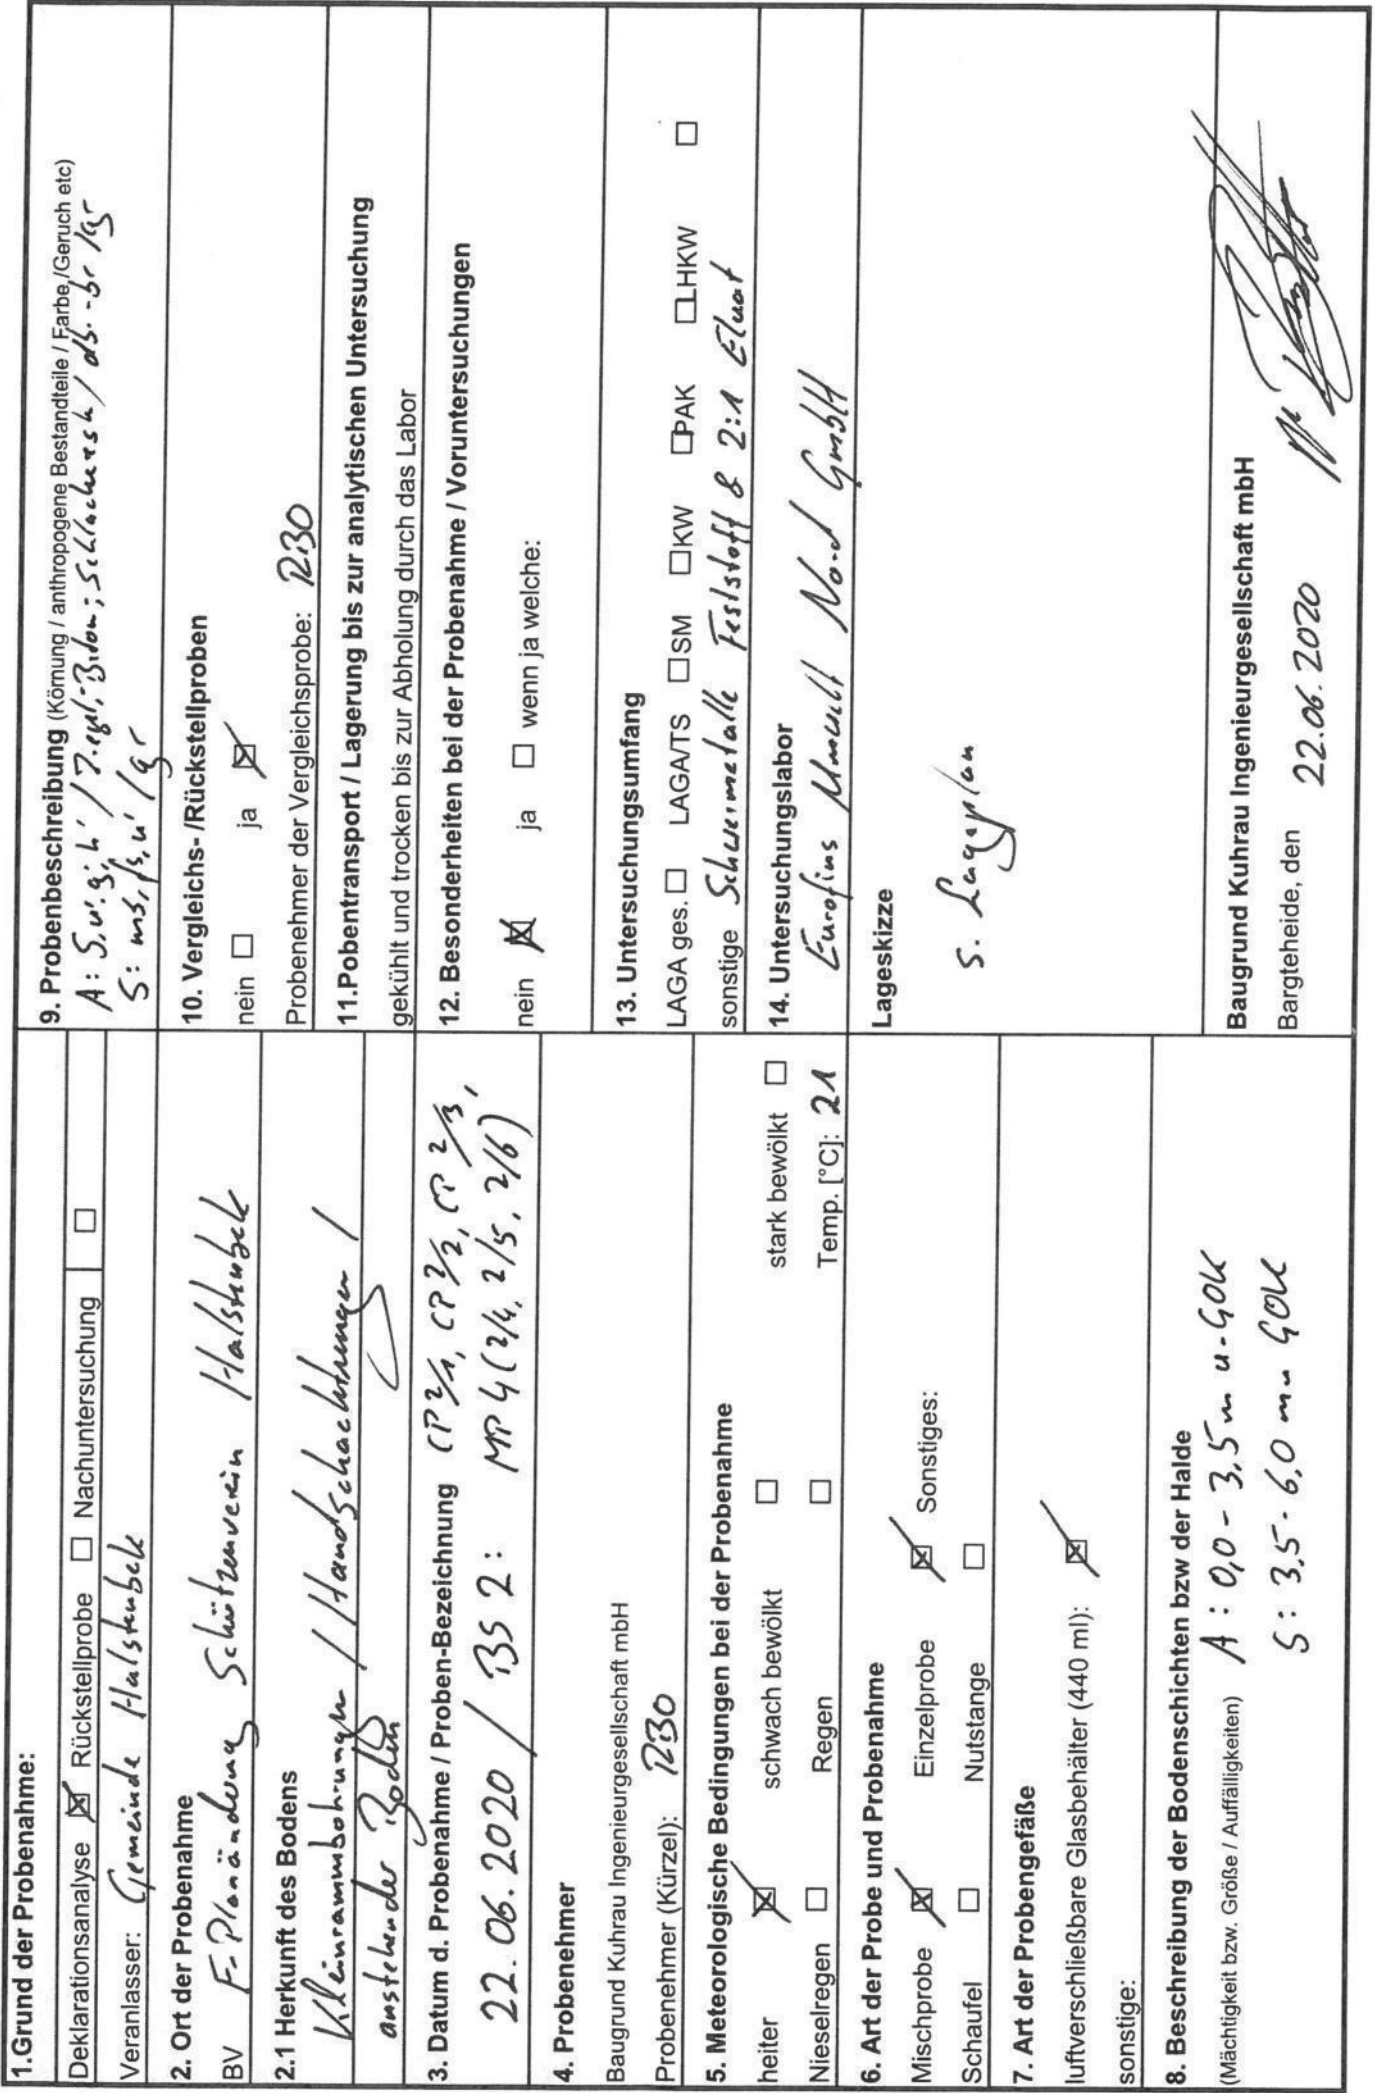 1.Grund der Probenahme:
Deklarationsanalyse ☒ Rückstellprobe ☐ Nachuntersuchung ☐
Veranlasser: Gemeinde Halstenbek
2. Ort der Probenahme
BV F-Planänderung Schützenverein Halstenbek
2.1 Herkunft des Bodens
Kleinrammbohrungen / Handschachtungen /
anstehender Boden
3. Datum d. Probenahme / Proben-Bezeichnung (CP 2/1, CP 2/2, CP 2/3,
22.06.2020 / BS 2: MP 4 (2/4, 2/5, 2/6)
4. Probenehmer
Baugrund Kuhrau Ingenieurgesellschaft mbH
Probenehmer (Kürzel):
5. Meteorologische Bedingungen bei der Probenahme
heiter ☒ schwach bewölkt ☐ stark bewölkt ☐
Nieselregen ☐ Regen ☐ Temp. [°C]: 21
6. Art der Probe und Probenahme
Mischprobe ☒ Einzelprobe ☒ Sonstiges:
Schaufel ☐ Nutstange ☐
7. Art der Probengefäße
luftverschließbare Glasbehälter (440 ml): ☒
sonstige:
8. Beschreibung der Bodenschichten bzw der Halde
(Mächtigkeit bzw. Größe / Auffälligkeiten) A: 0,0 - 3,5 m u. GOK
S: 3,5 - 6,0 m u GOK
9. Probenbeschreibung (Körnung / anthropogene Bestandteile / Farbe /Geruch etc)
A: S, u', g', h' / Ziegel, Beton; Schlacke / db.-br /gr
S: ms, fs, u' / gr
10. Vergleichs- /Rückstellproben
nein ☐ ja ☒
Probenehmer der Vergleichsprobe:
11.Pobentransport / Lagerung bis zur analytischen Untersuchung
gekühlt und trocken bis zur Abholung durch das Labor
12. Besonderheiten bei der Probenahme / Voruntersuchungen
nein ☒ ja ☐ wenn ja welche:
13. Untersuchungsumfang
LAGA ges. ☐ LAGA/TS ☐SM ☐KW ☐PAK ☐LHKW ☐
sonstige Schwermetalle Feststoff & 2:1 Eluat
14. Untersuchungslabor
Eurofins Umwelt Nord GmbH
Lageskizze
s. Lageplan
Baugrund Kuhrau Ingenieurgesellschaft mbH
Bargteheide, den 22.06.2020